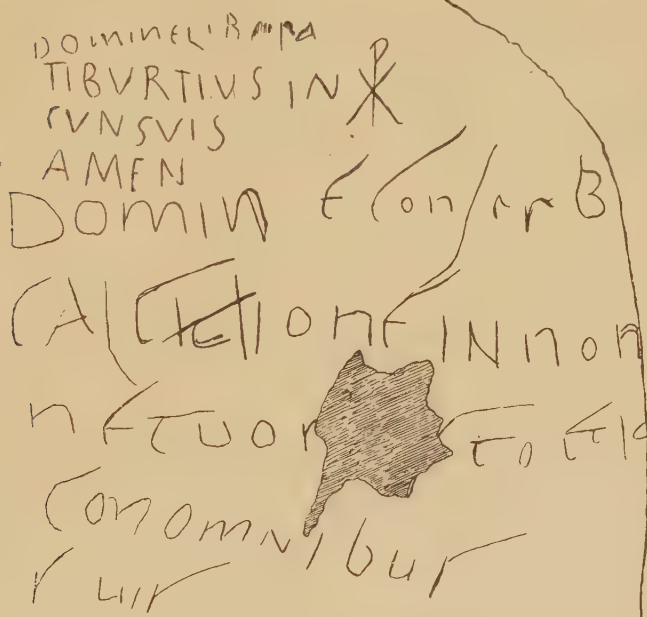 DOMINE LIB
TIBVRTIUS IN ☧
CVN SVIS
AMEN
DOMINE CONSERB
CAL IONE IN NON
NE TUO
CON OMNIBUS
SUIS